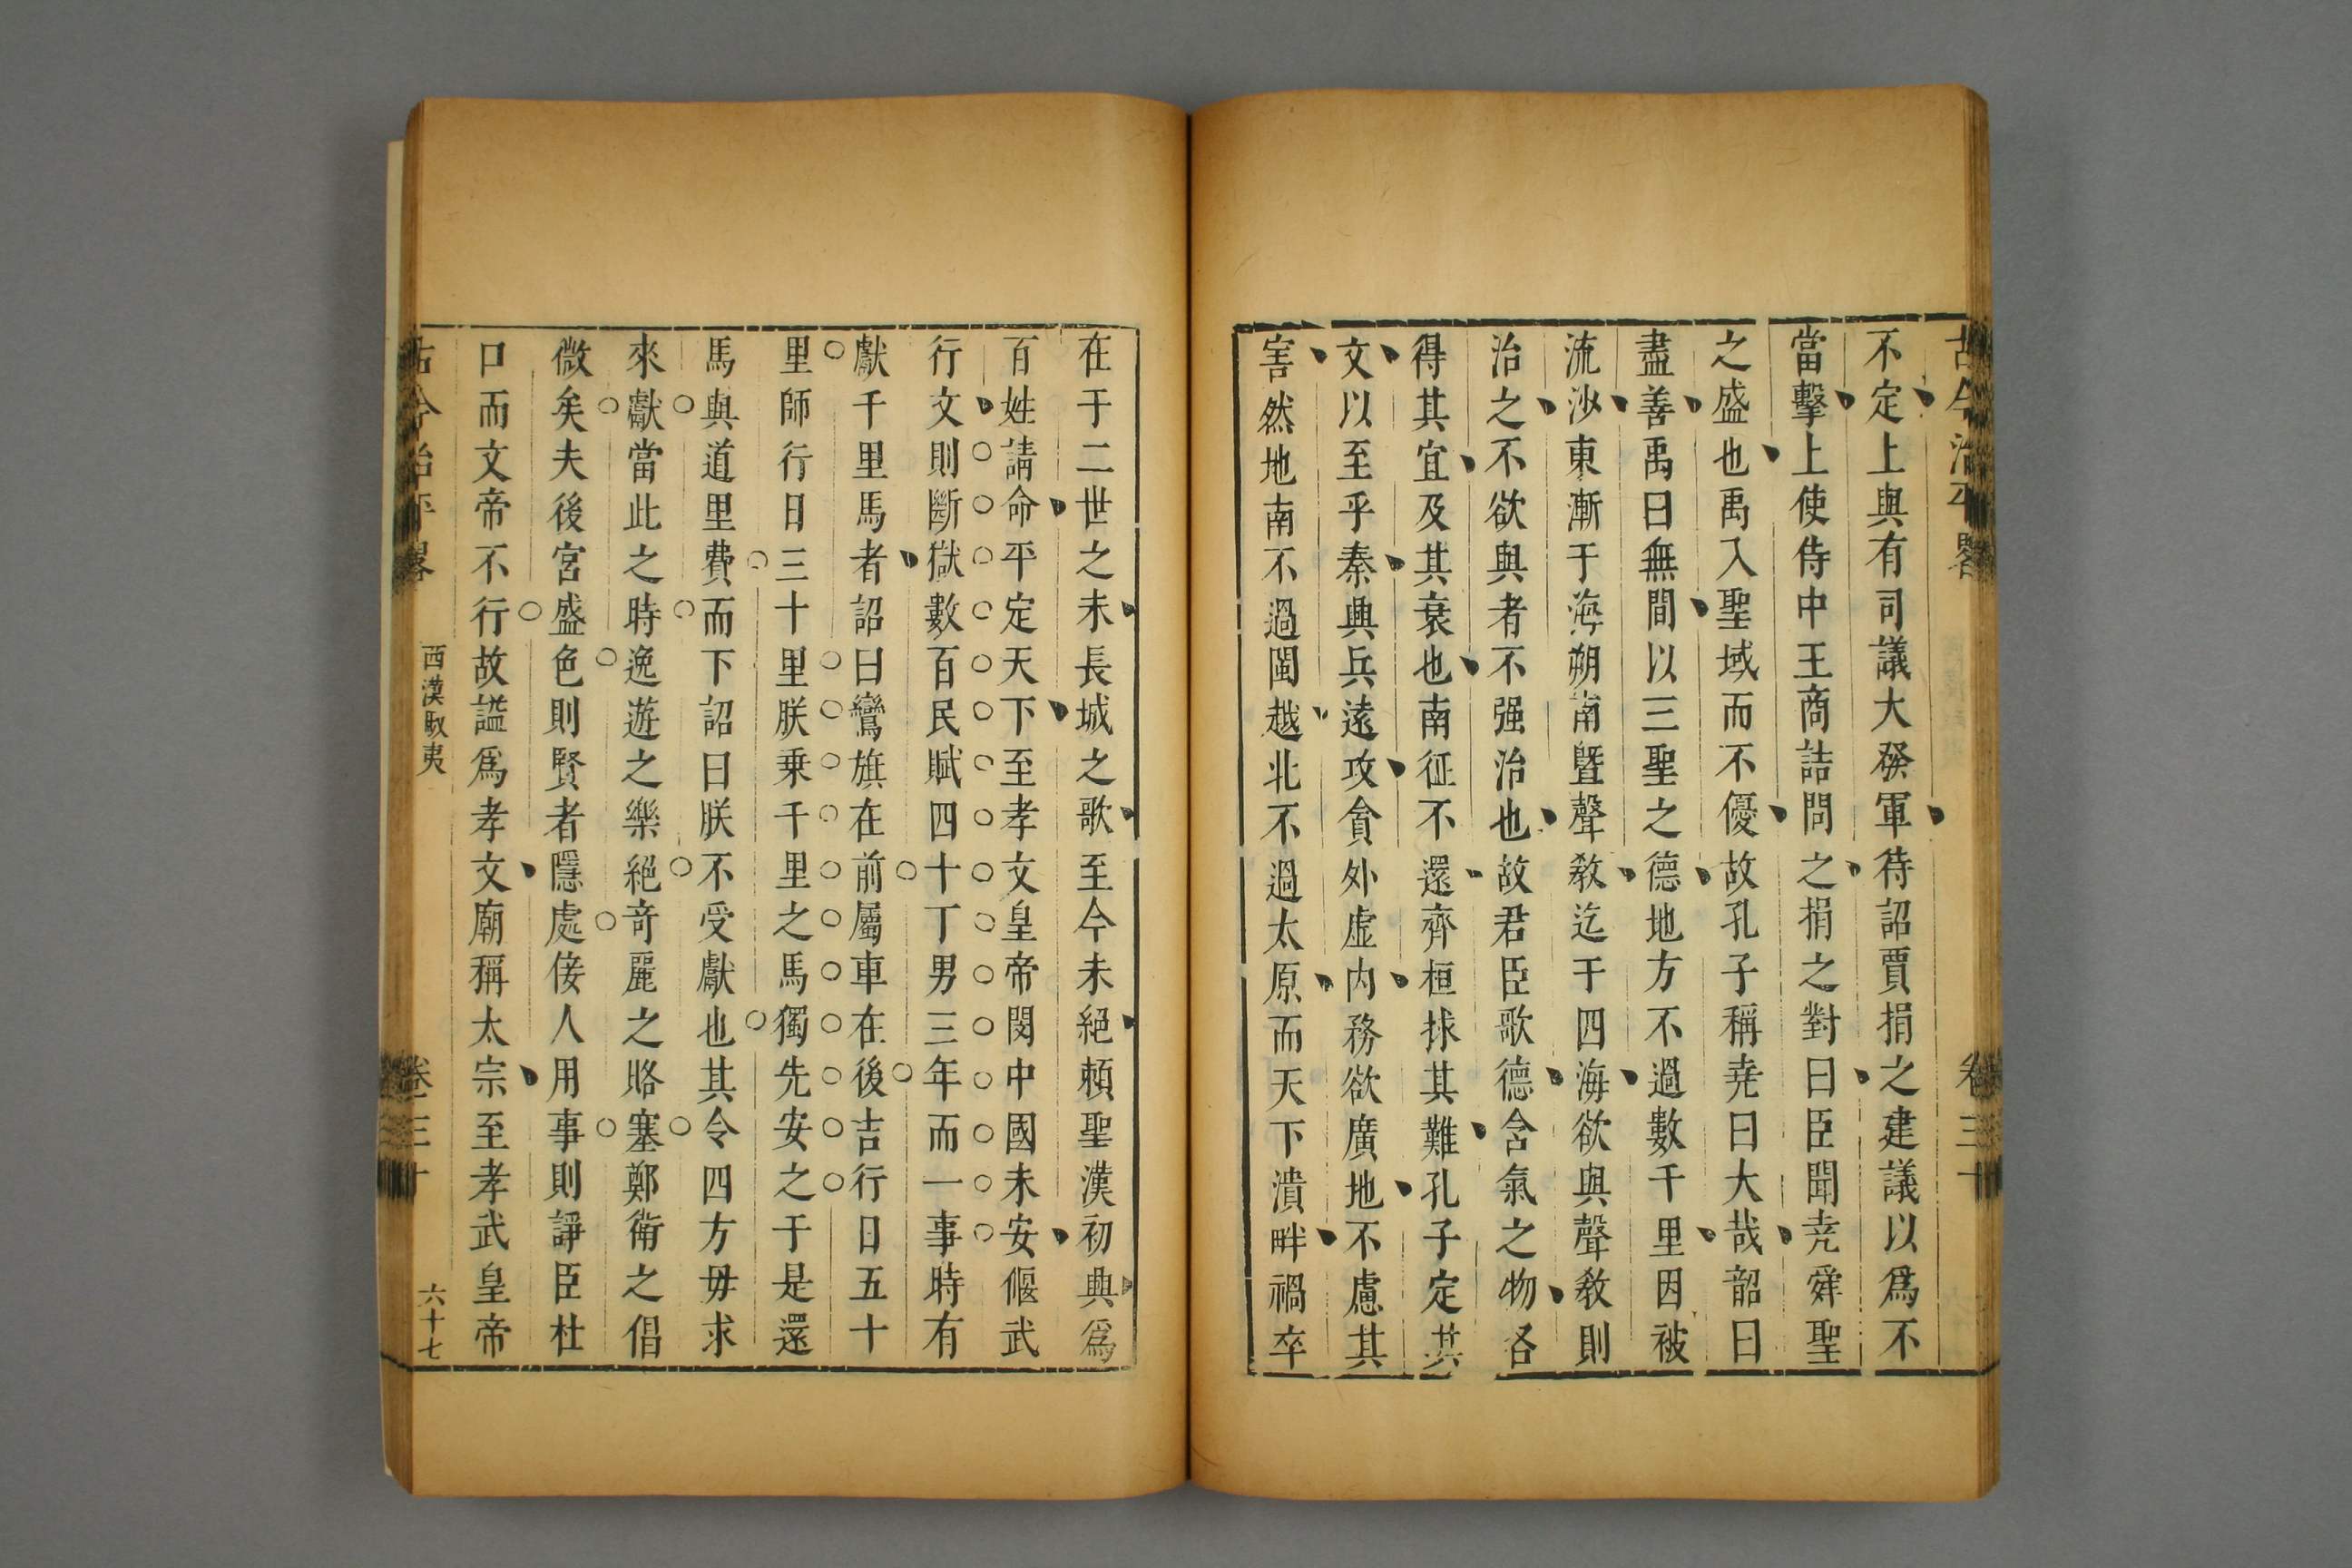 古今治平畧 卷三十
不定上與有司議大發軍待詔賈捐之建議以爲不
當擊上使侍中王商詰問之捐之對曰臣聞堯舜聖
之盛也禹入聖域而不優故孔子稱堯曰大哉韶曰
盡善禹曰無間以三聖之德地方不過數千里因被
流沙東漸于海朔南曁聲敎迄于四海欲與聲敎則
治之不欲與者不强治也故君臣歌德含氣之物各
得其宜及其衰也南征不還齊桓捄其難孔子定其
文以至乎秦興兵遠攻貪外虛內務欲廣地不慮其
害然地南不過閩越北不過太原而天下潰畔禍卒
在于二世之末長城之歌至今未絕賴聖漢初典爲
百姓請命平定天下至孝文皇帝閔中國未安偃武
行文則斷獄數百民賦四十丁男三年而一事時有
獻千里馬者詔曰鸞旗在前屬車在後吉行日五十
里師行日三十里朕乗千里之馬獨先安之于是還
馬與道里費而下詔曰朕不受獻也其令四方毋求
來獻當此之時逸遊之樂絕奇麗之賂塞鄭衛之倡
微矣夫後宮盛色則賢者隱處佞人用事則諍臣杜
口而文帝不行故謚爲孝文廟稱太宗至孝武皇帝
古今治平畧 西漢馭夷 卷三十 六十七